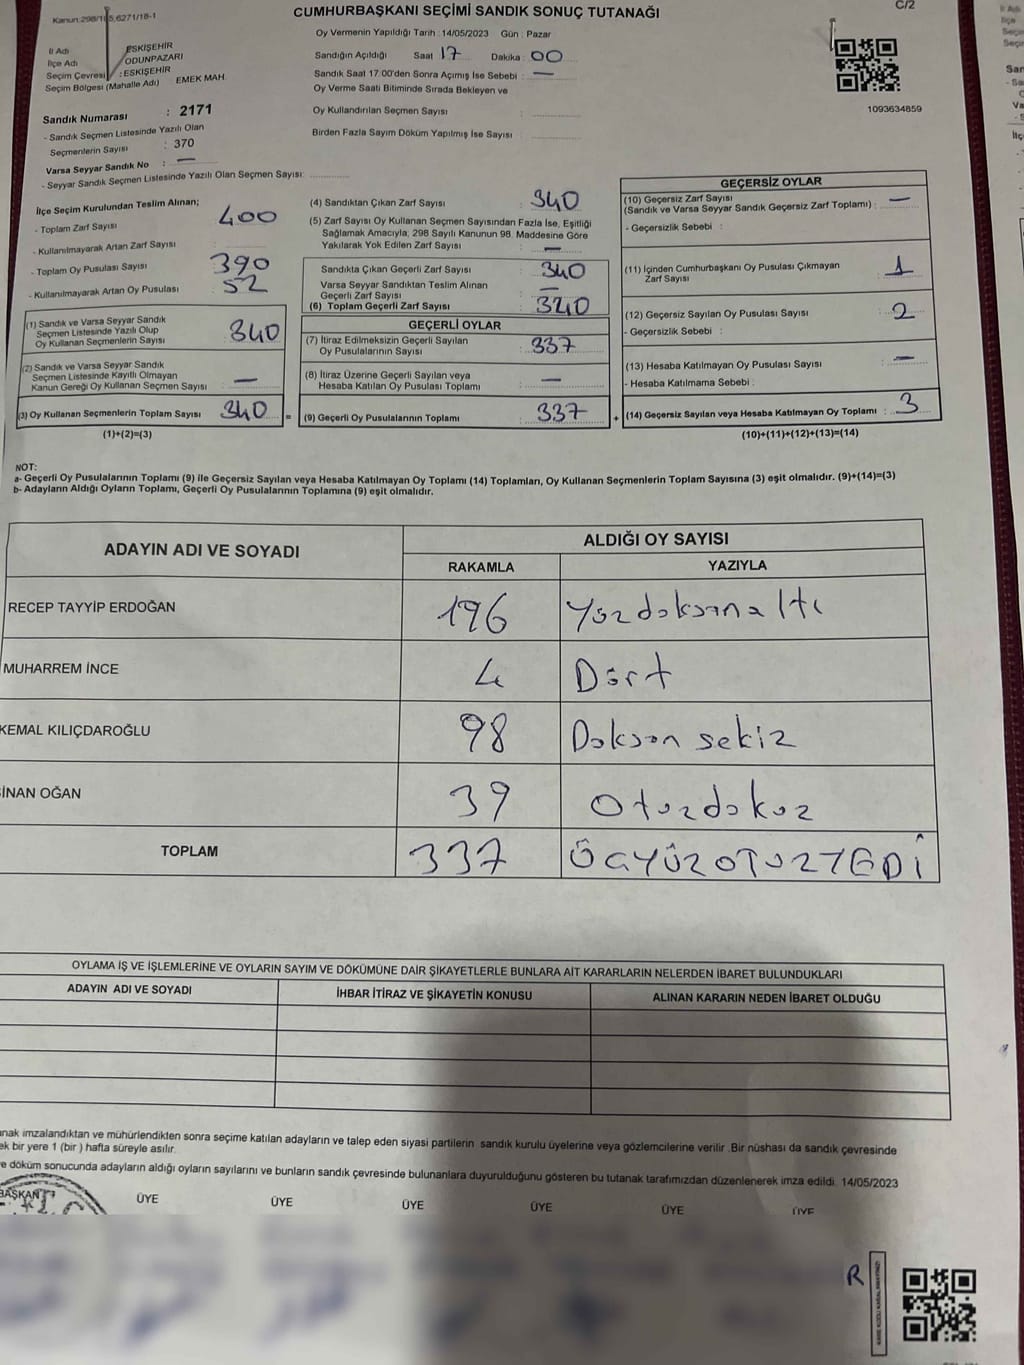 Kanun:298/105,6271/18-1
CUMHURBAŞKANI SEÇİMİ SANDIK SONUÇ TUTANAĞI
C/2
Oy Vermenin Yapıldığı Tarih : 14/05/2023 Gün : Pazar
İl Adı : ESKİŞEHİR
İlçe Adı ODUNPAZARI
Seçim Çevresi : ESKİŞEHİR
Seçim Bölgesi (Mahalle Adı) EMEK MAH.
Sandığın Açıldığı Saat 17 Dakika : 00
Sandık Saat 17.00'den Sonra Açımış İse Sebebi : —
Oy Verme Saati Bitiminde Sırada Bekleyen ve
Oy Kullandırılan Seçmen Sayısı :
Birden Fazla Sayım Döküm Yapılmış İse Sayısı :
1093634859
Sandık Numarası : 2171
- Sandık Seçmen Listesinde Yazılı Olan
Seçmenlerin Sayısı : 370
Varsa Seyyar Sandık No : —
- Seyyar Sandık Seçmen Listesinde Yazılı Olan Seçmen Sayısı:
İlçe Seçim Kurulundan Teslim Alınan;
- Toplam Zarf Sayısı 400
- Kullanılmayarak Artan Zarf Sayısı :
- Toplam Oy Pusulası Sayısı 390
- Kullanılmayarak Artan Oy Pusulası 52
(1) Sandık ve Varsa Seyyar Sandık
Seçmen Listesinde Yazılı Olup
Oy Kullanan Seçmenlerin Sayısı : 340
(2) Sandık ve Varsa Seyyar Sandık
Seçmen Listesinde Kayıtlı Olmayan
Kanun Gereği Oy Kullanan Seçmen Sayısı : —
(3) Oy Kullanan Seçmenlerin Toplam Sayısı 340 =
(1)+(2)=(3)
(4) Sandıktan Çıkan Zarf Sayısı : 340
(5) Zarf Sayısı Oy Kullanan Seçmen Sayısından Fazla İse, Eşitliği
Sağlamak Amacıyla; 298 Sayılı Kanunun 98. Maddesine Göre
Yakılarak Yok Edilen Zarf Sayısı : —
Sandıkta Çıkan Geçerli Zarf Sayısı : 340
Varsa Seyyar Sandıktan Teslim Alınan
Geçerli Zarf Sayısı : —
(6) Toplam Geçerli Zarf Sayısı : 340
GEÇERLİ OYLAR
(7) İtiraz Edilmeksizin Geçerli Sayılan
Oy Pusulalarının Sayısı : 337
(8) İtiraz Üzerine Geçerli Sayılan veya
Hesaba Katılan Oy Pusulası Toplamı : —
(9) Geçerli Oy Pusulalarının Toplamı : 337 +
GEÇERSİZ OYLAR
(10) Geçersiz Zarf Sayısı
(Sandık ve Varsa Seyyar Sandık Geçersiz Zarf Toplamı) : —
- Geçersizlik Sebebi :
(11) İçinden Cumhurbaşkanı Oy Pusulası Çıkmayan
Zarf Sayısı : 1
(12) Geçersiz Sayılan Oy Pusulası Sayısı : 2
- Geçersizlik Sebebi :
(13) Hesaba Katılmayan Oy Pusulası Sayısı : —
- Hesaba Katılmama Sebebi :
(14) Geçersiz Sayılan veya Hesaba Katılmayan Oy Toplamı : 3
(10)+(11)+(12)+(13)=(14)
NOT:
a- Geçerli Oy Pusulalarının Toplamı (9) ile Geçersiz Sayılan veya Hesaba Katılmayan Oy Toplamı (14) Toplamları, Oy Kullanan Seçmenlerin Toplam Sayısına (3) eşit olmalıdır. (9)+(14)=(3)
b- Adayların Aldığı Oyların Toplamı, Geçerli Oy Pusulalarının Toplamına (9) eşit olmalıdır.
ADAYIN ADI VE SOYADI ALDIĞI OY SAYISI
RAKAMLA YAZIYLA
RECEP TAYYİP ERDOĞAN 196 Yüzdoksanaltı
MUHARREM İNCE 4 Dört
KEMAL KILIÇDAROĞLU 98 Doksan sekiz
SİNAN OĞAN 39 Otuzdokuz
TOPLAM 337 ÜÇYÜZOTUZYEDİ
OYLAMA İŞ VE İŞLEMLERİNE VE OYLARIN SAYIM VE DÖKÜMÜNE DAİR ŞİKAYETLERLE BUNLARA AİT KARARLARIN NELERDEN İBARET BULUNDUKLARI
ADAYIN ADI VE SOYADI İHBAR İTİRAZ VE ŞİKAYETİN KONUSU ALINAN KARARIN NEDEN İBARET OLDUĞU
anak imzalandıktan ve mühürlendikten sonra seçime katılan adayların ve talep eden siyasi partilerin sandık kurulu üyelerine veya gözlemcilerine verilir. Bir nüshası da sandık çevresinde
ek bir yere 1 (bir) hafta süreyle asılır.
e döküm sonucunda adayların aldığı oyların sayılarını ve bunların sandık çevresinde bulunanlara duyurulduğunu gösteren bu tutanak tarafımızdan düzenlenerek imza edildi. 14/05/2023
BAŞKAN ÜYE ÜYE ÜYE ÜYE ÜYE ÜYE
R